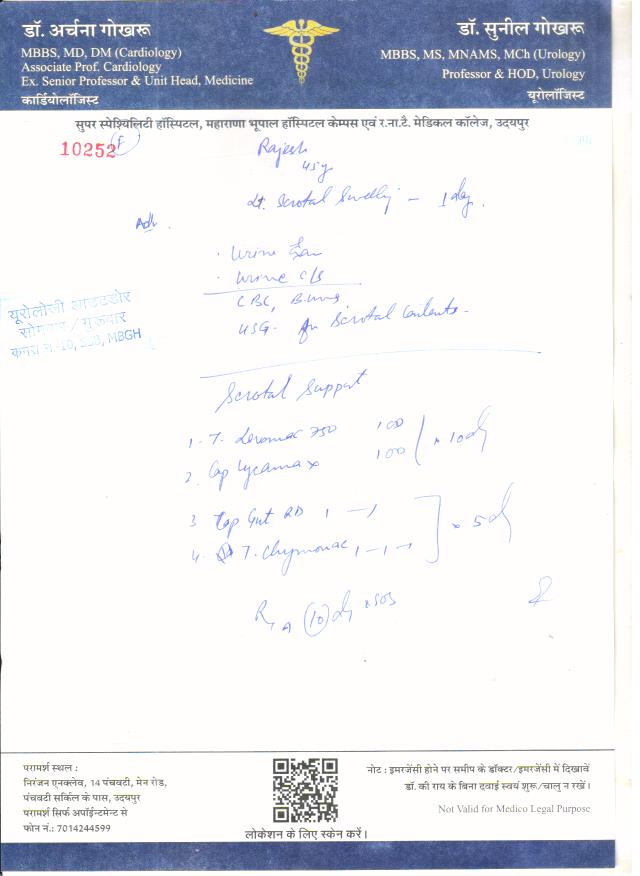 डॉ. अर्चना गोखरू
MBBS, MD, DM (Cardiology)
Associate Prof. Cardiology
Ex. Senior Professor & Unit Head, Medicine
कार्डियोलॉजिस्ट
डॉ. सुनील गोखरू
MBBS, MS, MNAMS, MCh (Urology)
Professor & HOD, Urology
यूरोलॉजिस्ट
सुपर स्पेश्यिलिटी हॉस्पिटल, महाराणा भूपाल हॉस्पिटल केम्पस एवं र.ना.टै. मेडिकल कॉलेज, उदयपुर
10252 F
Rajesh
Lt. Scrotal Swelling - 1 day.
Adv.
· Urine
· Urine C/S
CBC,
USG. Scrotal Contents.
यूरोलॉजी आउटडोर
सोमवार / गुरूवार
कमरा न.-10, SSB, MBGH
Scrotal Support
1. T. 750 100
2. Cap Lycamax 100 } x 10 d
3 Cap Gut RD 1 — 1
4. T. Chymonac 1 - 1 - 1 } x 5 d
R/A (10) d x SOS
परामर्श स्थल :
निरंजन एनक्लेव, 14 पंचवटी, मेन रोड,
पंचवटी सर्किल के पास, उदयपुर
परामर्श सिर्फ अपॉईन्टमेन्ट से
फोन नं.: 7014244599
लोकेशन के लिए स्केन करें।
नोट : इमरजेंसी होने पर समीप के डॉक्टर/इमरजेंसी में दिखावें
डॉ. की राय के बिना दवाई स्वयं शुरू/चालु न रखें।
Not Valid for Medico Legal Purpose